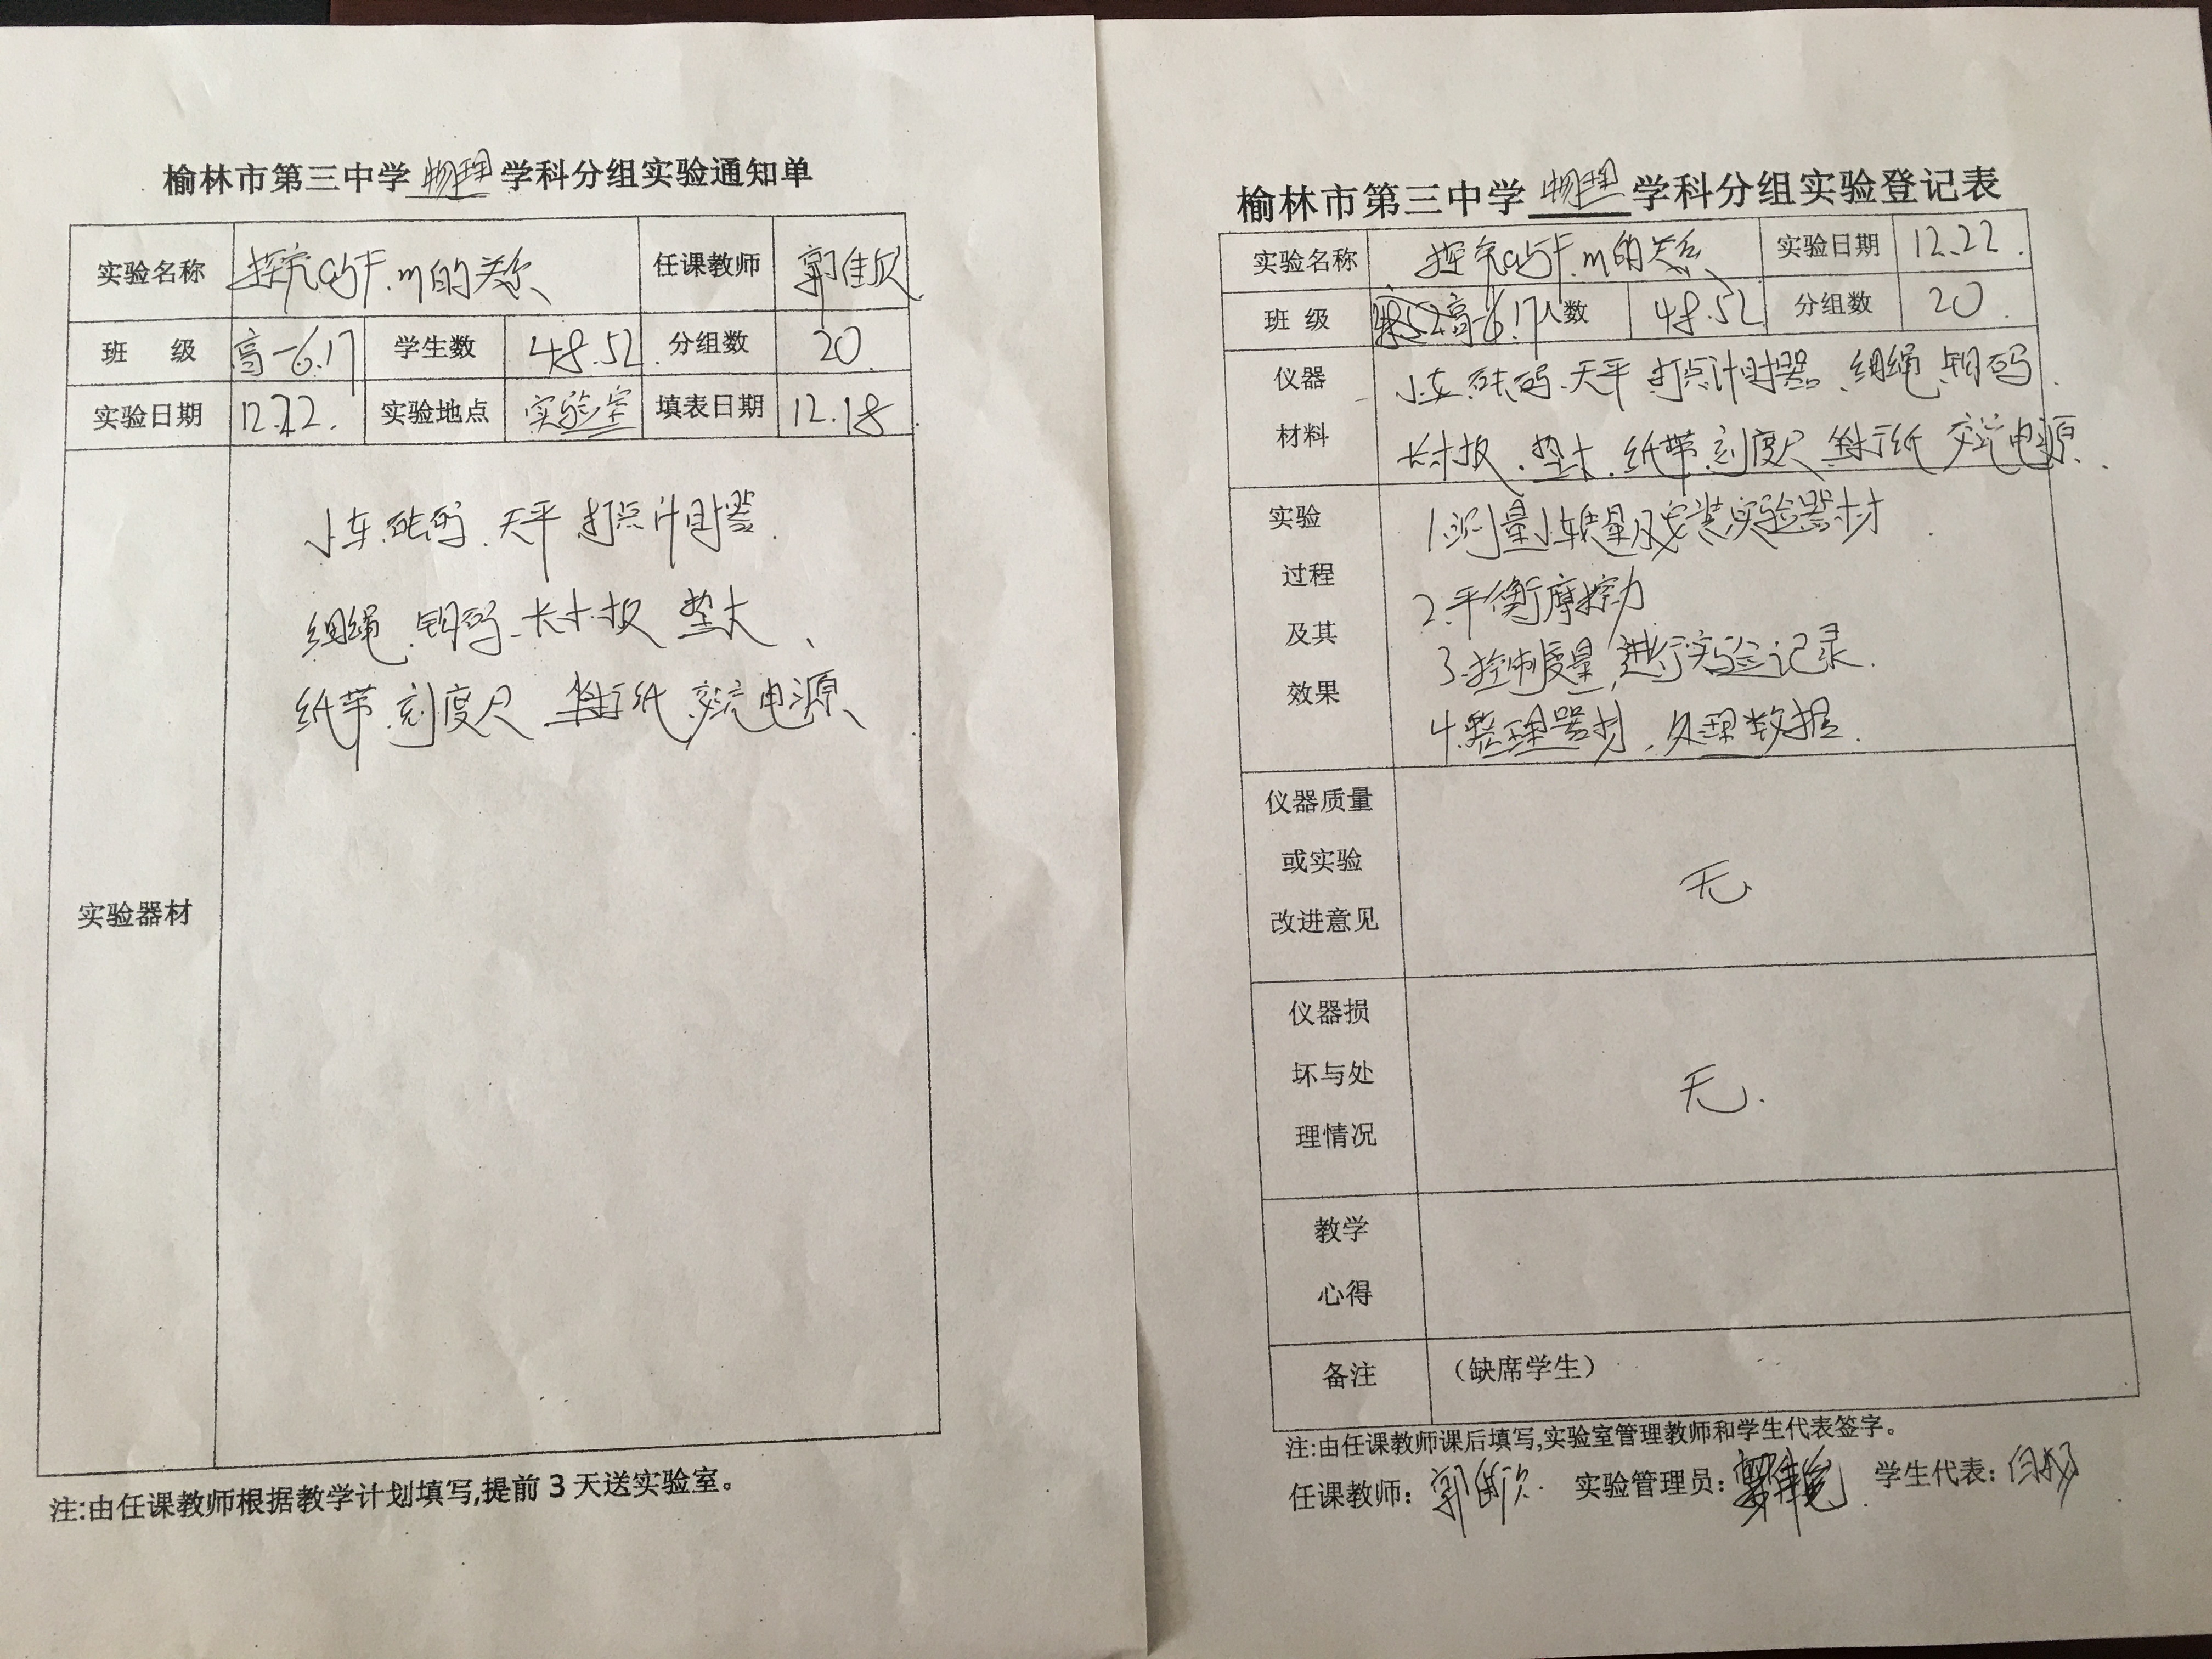 榆林市第三中学 物理 学科分组实验通知单
实验名称 探究a与F.m的关系 任课教师 郭佳欣
班 级 高一6.17 学生数 48.52. 分组数 20
实验日期 12.22. 实验地点 实验室 填表日期 12.18
实验器材
小车.砝码.天平 打点计时器.
细绳.钩码.长木板 垫木、
纸带.刻度尺 坐标纸.交流电源
注:由任课教师根据教学计划填写,提前3天送实验室。
榆林市第三中学 物理 学科分组实验登记表
实验名称 探究a与F.m的关系 实验日期 12.22.
班 级 高一6.17 人数 48.52 分组数 20.
仪器材料
小车.砝码.天平 打点计时器.细绳.钩码.
长木板.垫木.纸带.刻度尺 坐标纸 交流电源.
实验过程及其效果
1.测量小车质量及安装实验器材
2.平衡摩擦力
3.控制质量,进行实验记录.
4.整理器材,处理数据.
仪器质量或实验改进意见
无
仪器损坏与处理情况
无.
教学心得
备注 (缺席学生)
注:由任课教师课后填写,实验室管理教师和学生代表签字。
任课教师: 郭佳欣. 实验管理员: 学生代表: